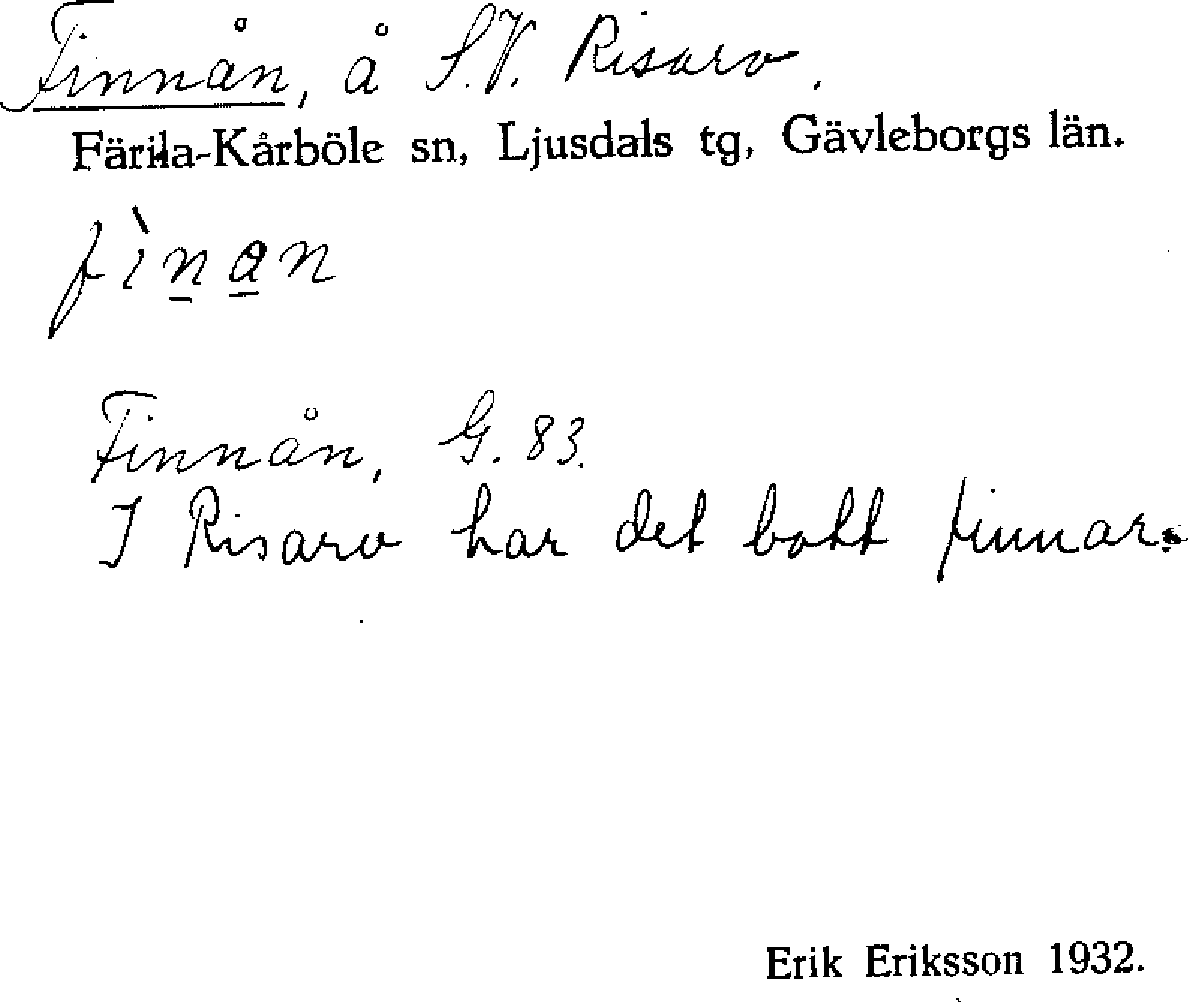 Finnån, å S.V. Risarv.
Färila-Kårböle sn, Ljusdals tg, Gävleborgs län.
fìnan
Finnån, G. 83.
I Risarv har det bott finnar.
Erik Eriksson 1932.